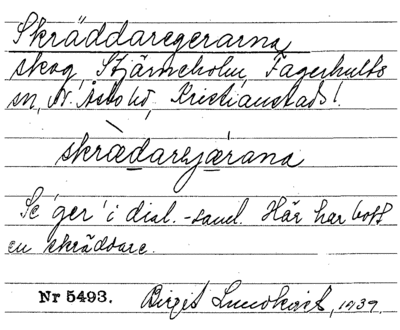 Skräddaregerarna
skog, Stjärneholm, Fagerhults
sn, N. Åsbo hd, Kristianstads l.
skrædarejærana
Se 'ger' i dial.-saml. Här har bott
en skräddare.
Nr 5493. Birgit Lundkvist, 1939.